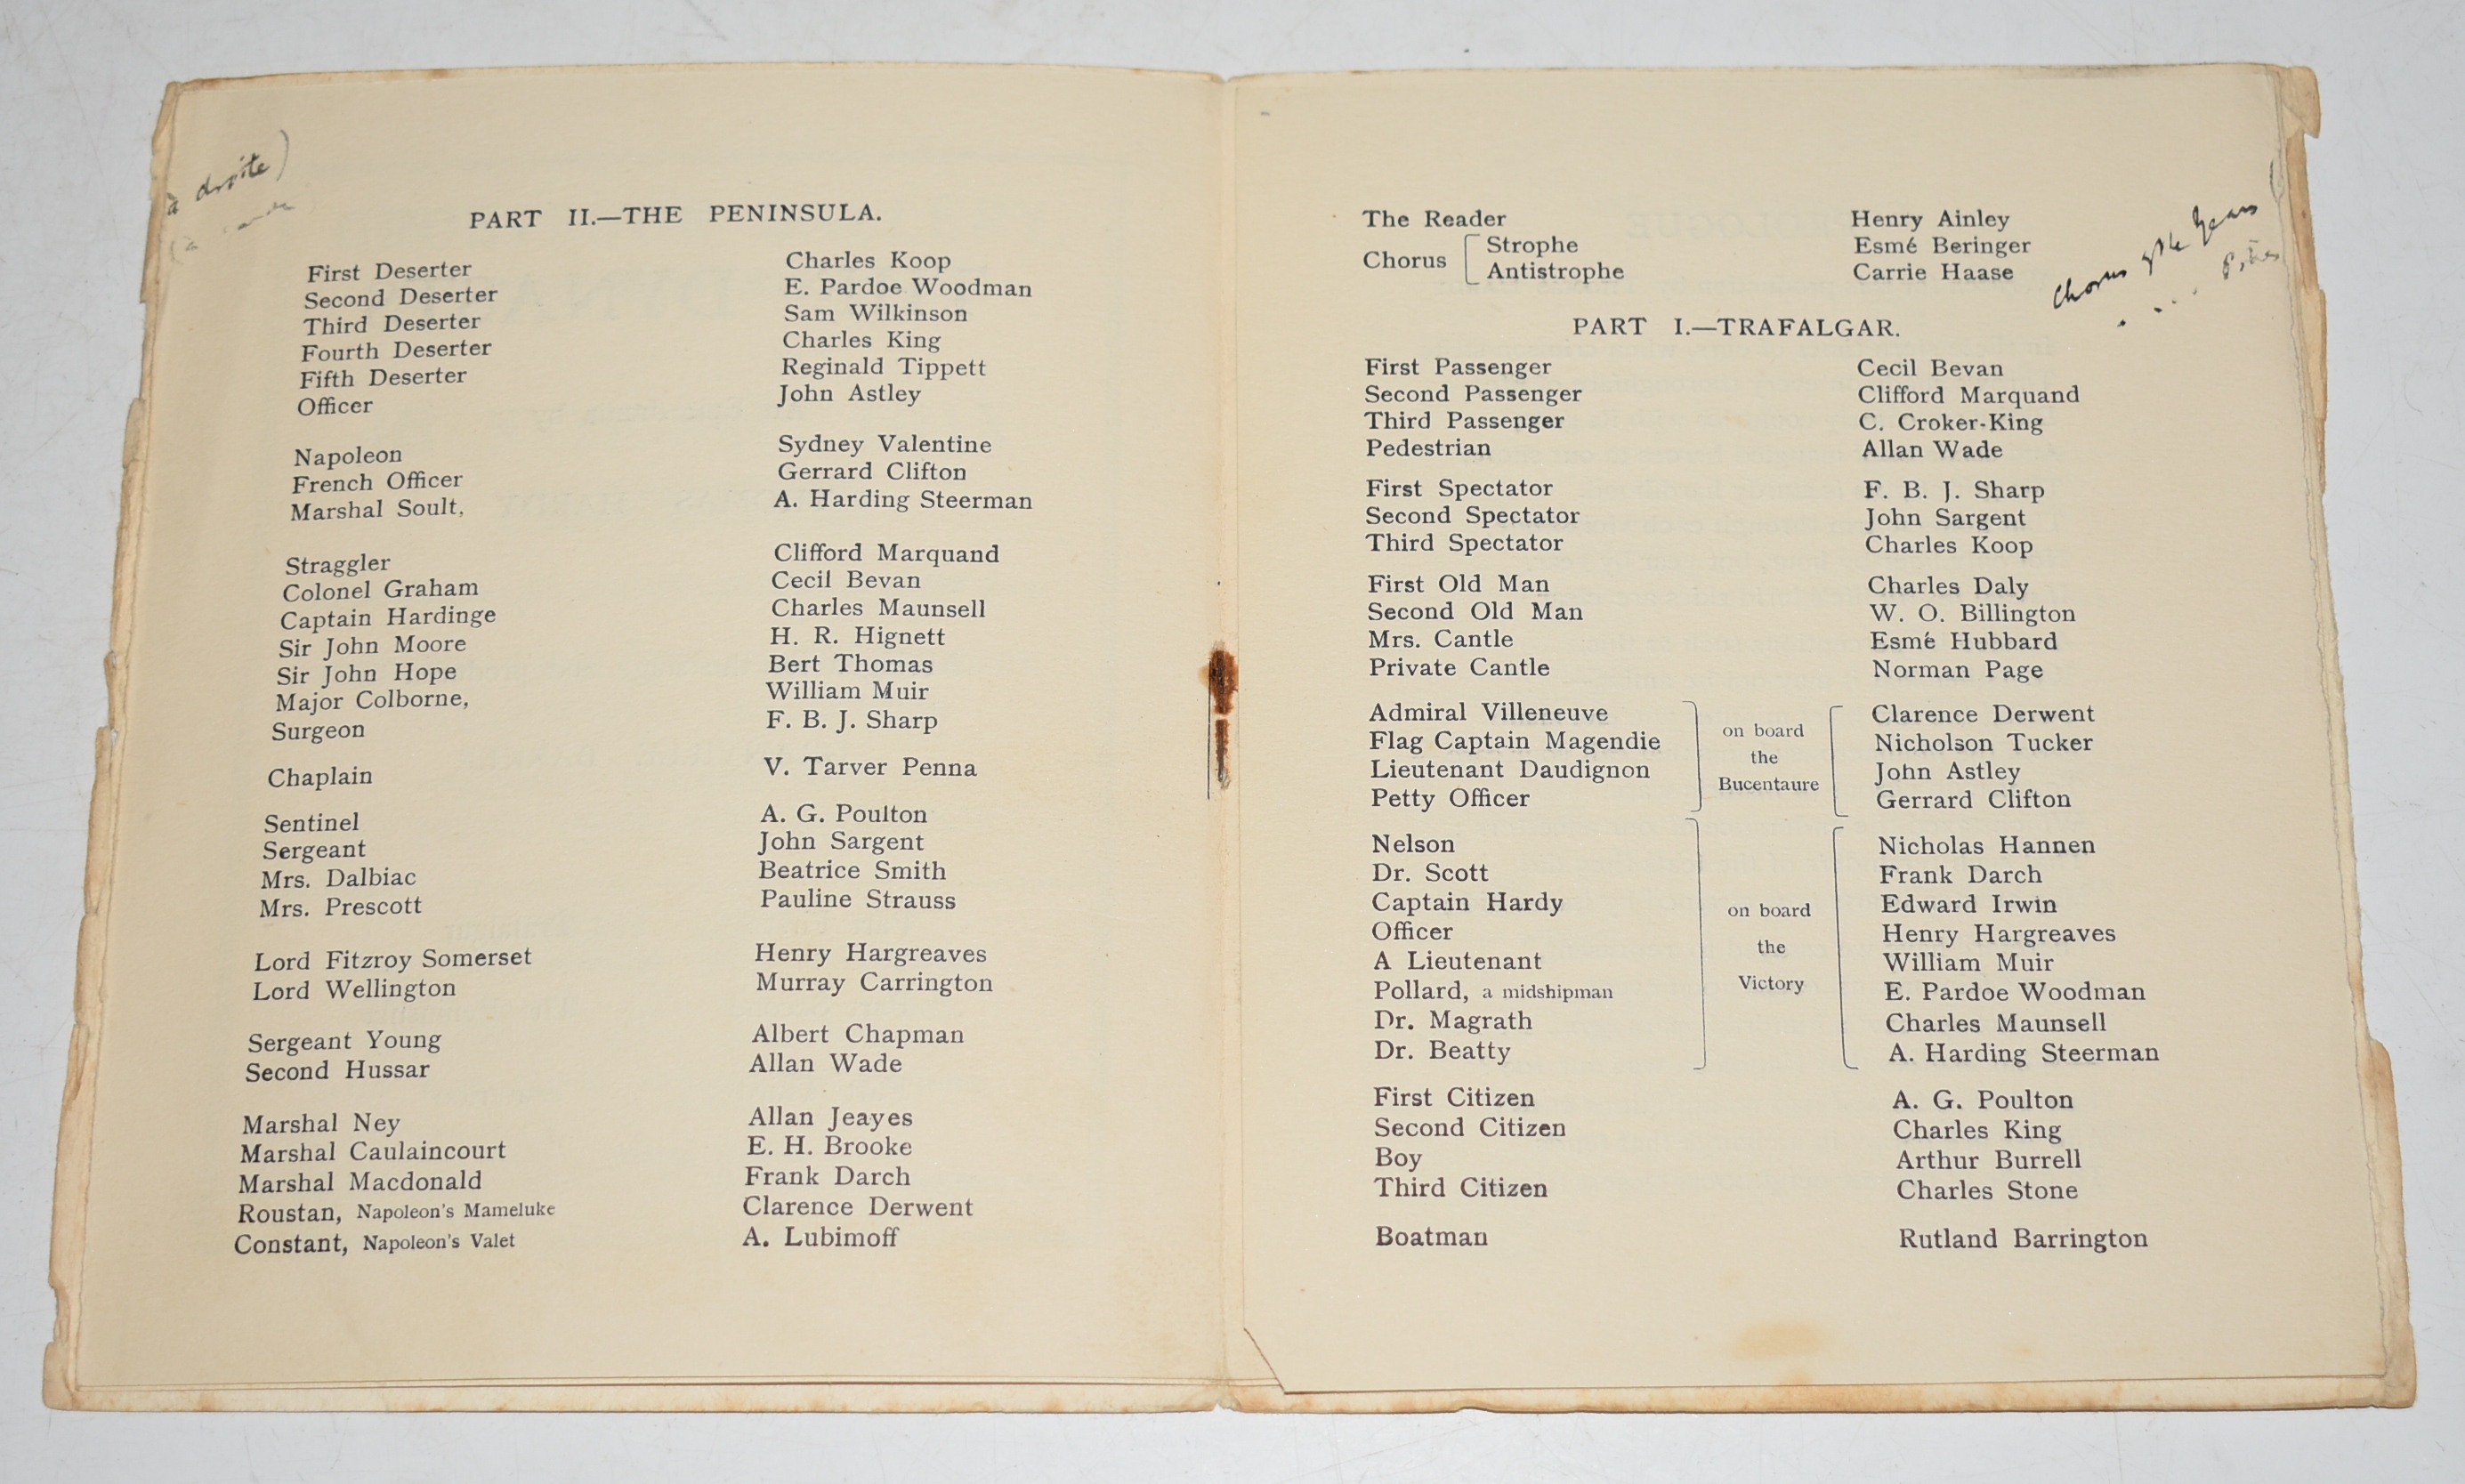 à droite)
PART II.—THE PENINSULA.
First Deserter Charles Koop
Second Deserter E. Pardoe Woodman
Third Deserter Sam Wilkinson
Fourth Deserter Charles King
Fifth Deserter Reginald Tippett
Officer John Astley
Napoleon Sydney Valentine
French Officer Gerrard Clifton
Marshal Soult, A. Harding Steerman
Straggler Clifford Marquand
Colonel Graham Cecil Bevan
Captain Hardinge Charles Maunsell
Sir John Moore H. R. Hignett
Sir John Hope Bert Thomas
Major Colborne, William Muir
Surgeon F. B. J. Sharp
Chaplain V. Tarver Penna
Sentinel A. G. Poulton
Sergeant John Sargent
Mrs. Dalbiac Beatrice Smith
Mrs. Prescott Pauline Strauss
Lord Fitzroy Somerset Henry Hargreaves
Lord Wellington Murray Carrington
Sergeant Young Albert Chapman
Second Hussar Allan Wade
Marshal Ney Allan Jeayes
Marshal Caulaincourt E. H. Brooke
Marshal Macdonald Frank Darch
Roustan, Napoleon's Mameluke Clarence Derwent
Constant, Napoleon's Valet A. Lubimoff
The Reader Henry Ainley
Chorus Strophe Esmé Beringer
Antistrophe Carrie Haase
Chorus of the Years
PART I.—TRAFALGAR.
First Passenger Cecil Bevan
Second Passenger Clifford Marquand
Third Passenger C. Croker-King
Pedestrian Allan Wade
First Spectator F. B. J. Sharp
Second Spectator John Sargent
Third Spectator Charles Koop
First Old Man Charles Daly
Second Old Man W. O. Billington
Mrs. Cantle Esmé Hubbard
Private Cantle Norman Page
Admiral Villeneuve Clarence Derwent
Flag Captain Magendie Nicholson Tucker
Lieutenant Daudignon John Astley
Petty Officer Gerrard Clifton
on board
the
Bucentaure
Nelson Nicholas Hannen
Dr. Scott Frank Darch
Captain Hardy Edward Irwin
Officer Henry Hargreaves
A Lieutenant William Muir
Pollard, a midshipman E. Pardoe Woodman
Dr. Magrath Charles Maunsell
Dr. Beatty A. Harding Steerman
on board
the
Victory
First Citizen A. G. Poulton
Second Citizen Charles King
Boy Arthur Burrell
Third Citizen Charles Stone
Boatman Rutland Barrington